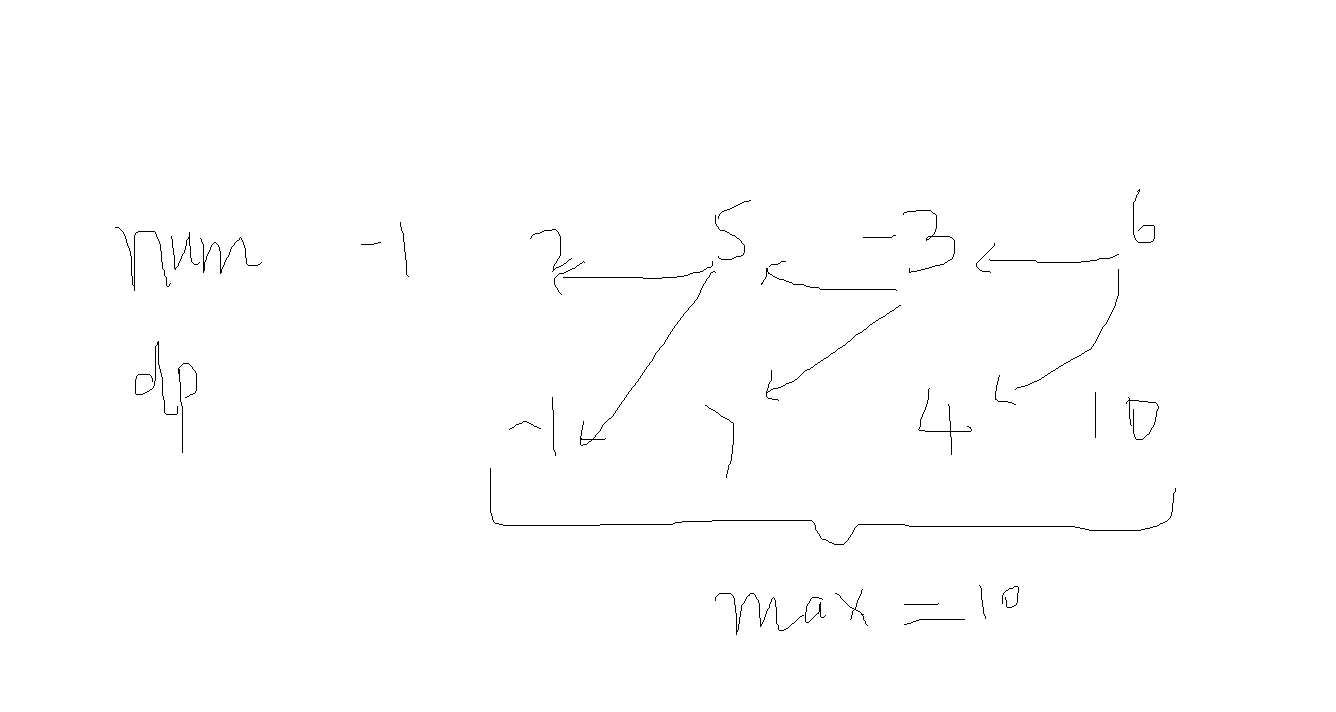 num -1 2 5 -3 6
dp -1 7 4 10
max = 10